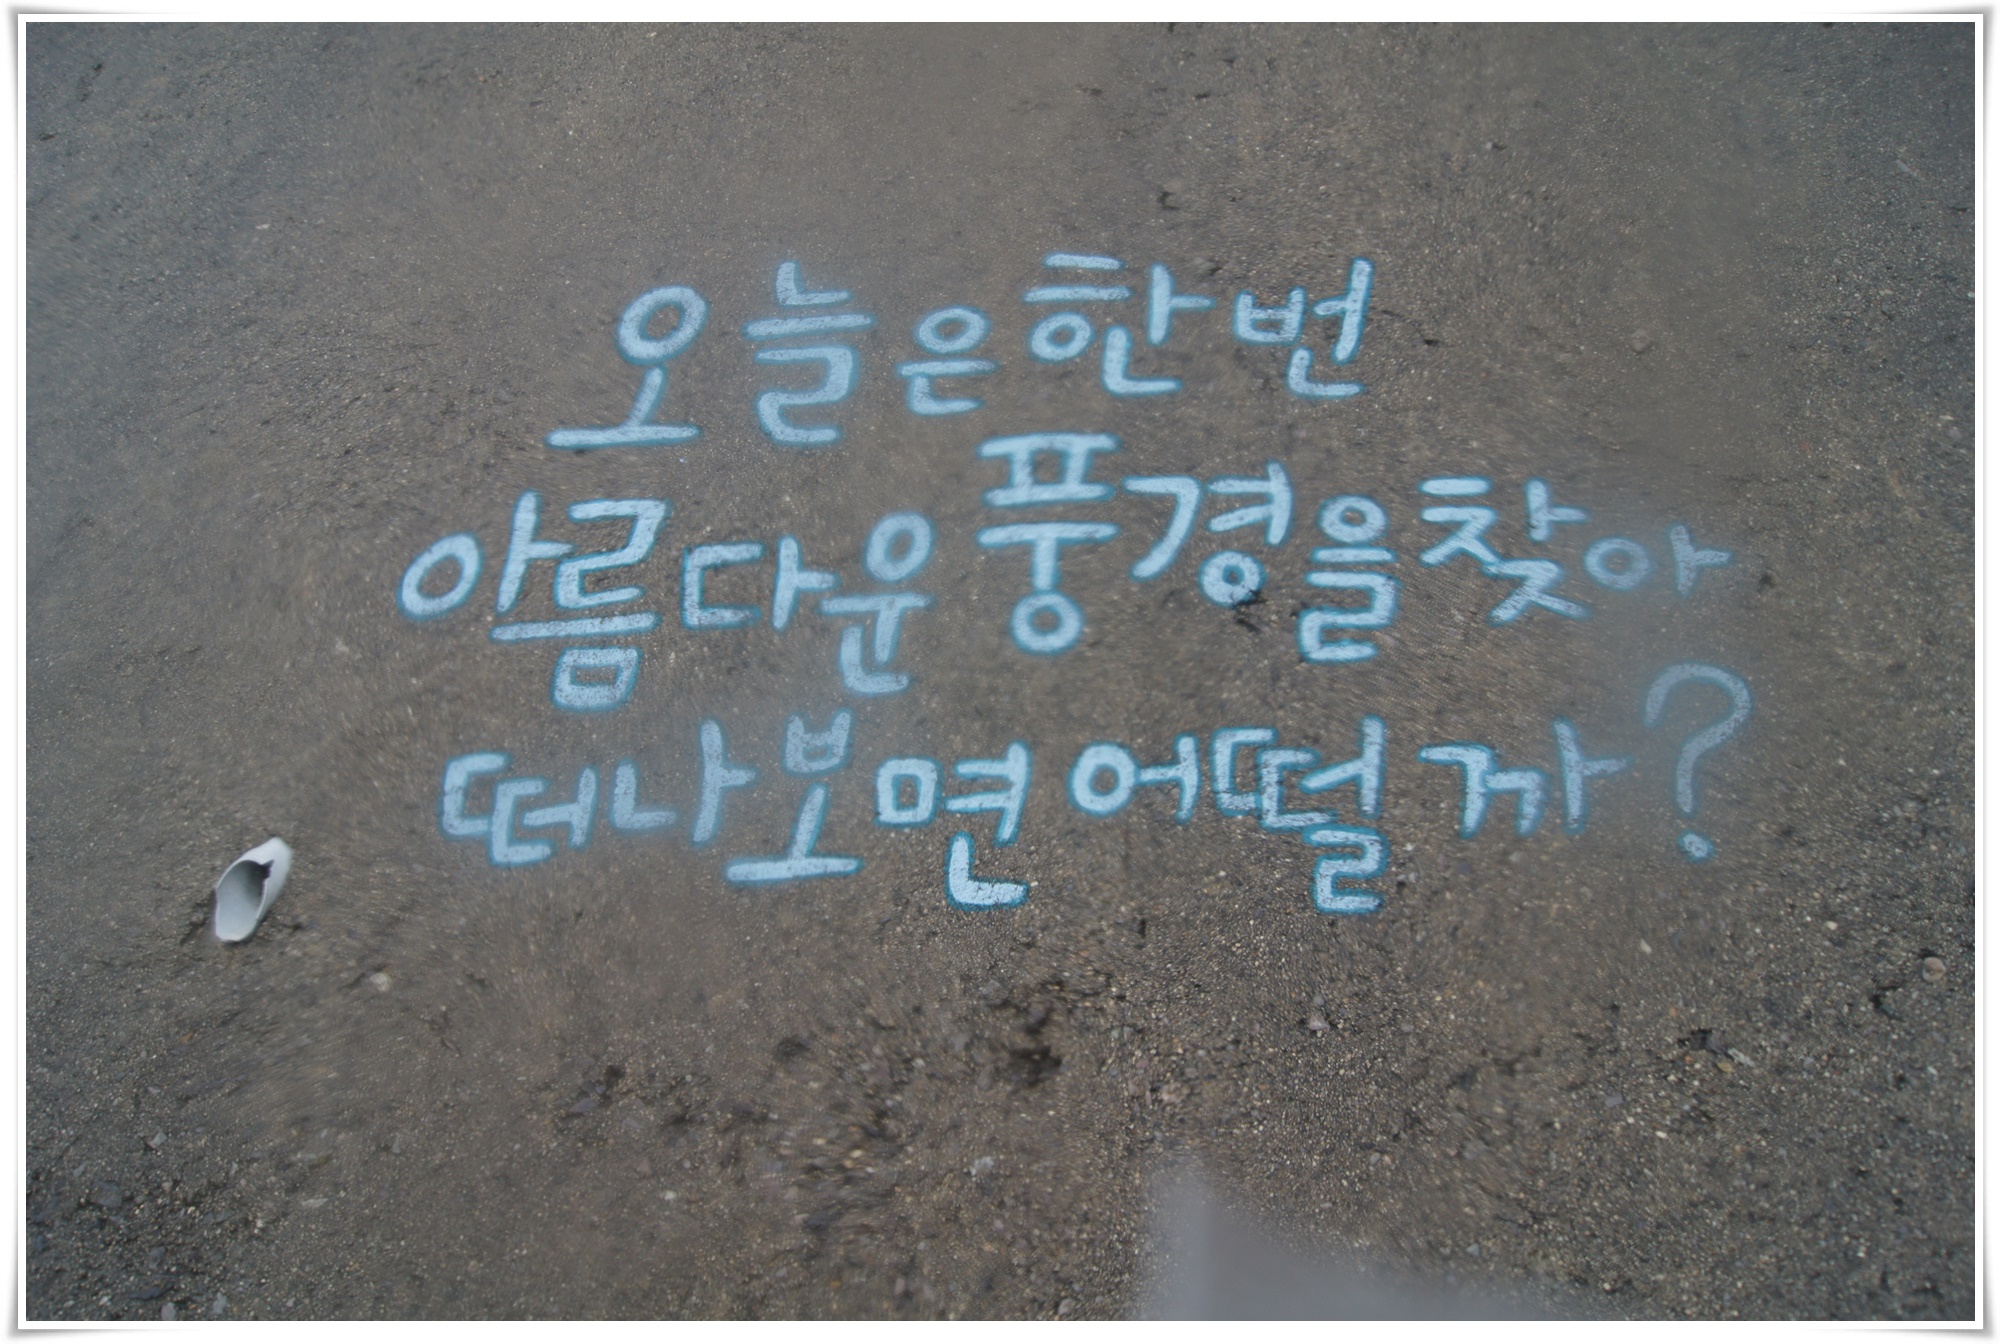 오늘은 한번
아름다운 풍경을 찾아
떠나보면 어떨까?